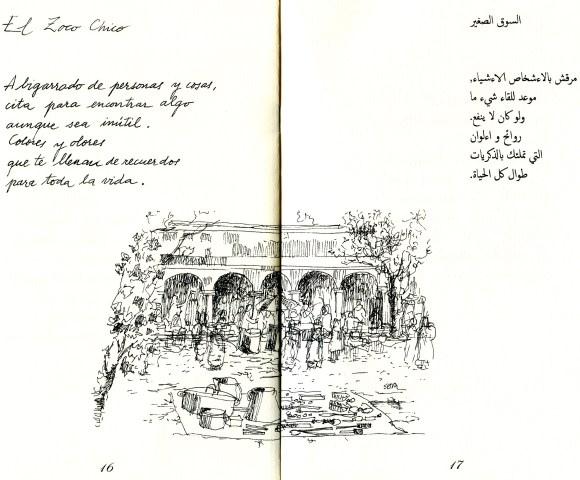 El Zoco Chico
Abigarrado de personas y cosas,
cita para encontrar algo
aunque sea inútil.
Colores y olores
que te llenan de recuerdos
para toda la vida.
16
السوق الصغير
مرقش بالاءشخاص الاءشياء،
موعد للقاء شيء ما
ولو كان لا ينفع.
روائح و اعلوان
التي تملئك بالذكريات
طوال كل الحياة.
17